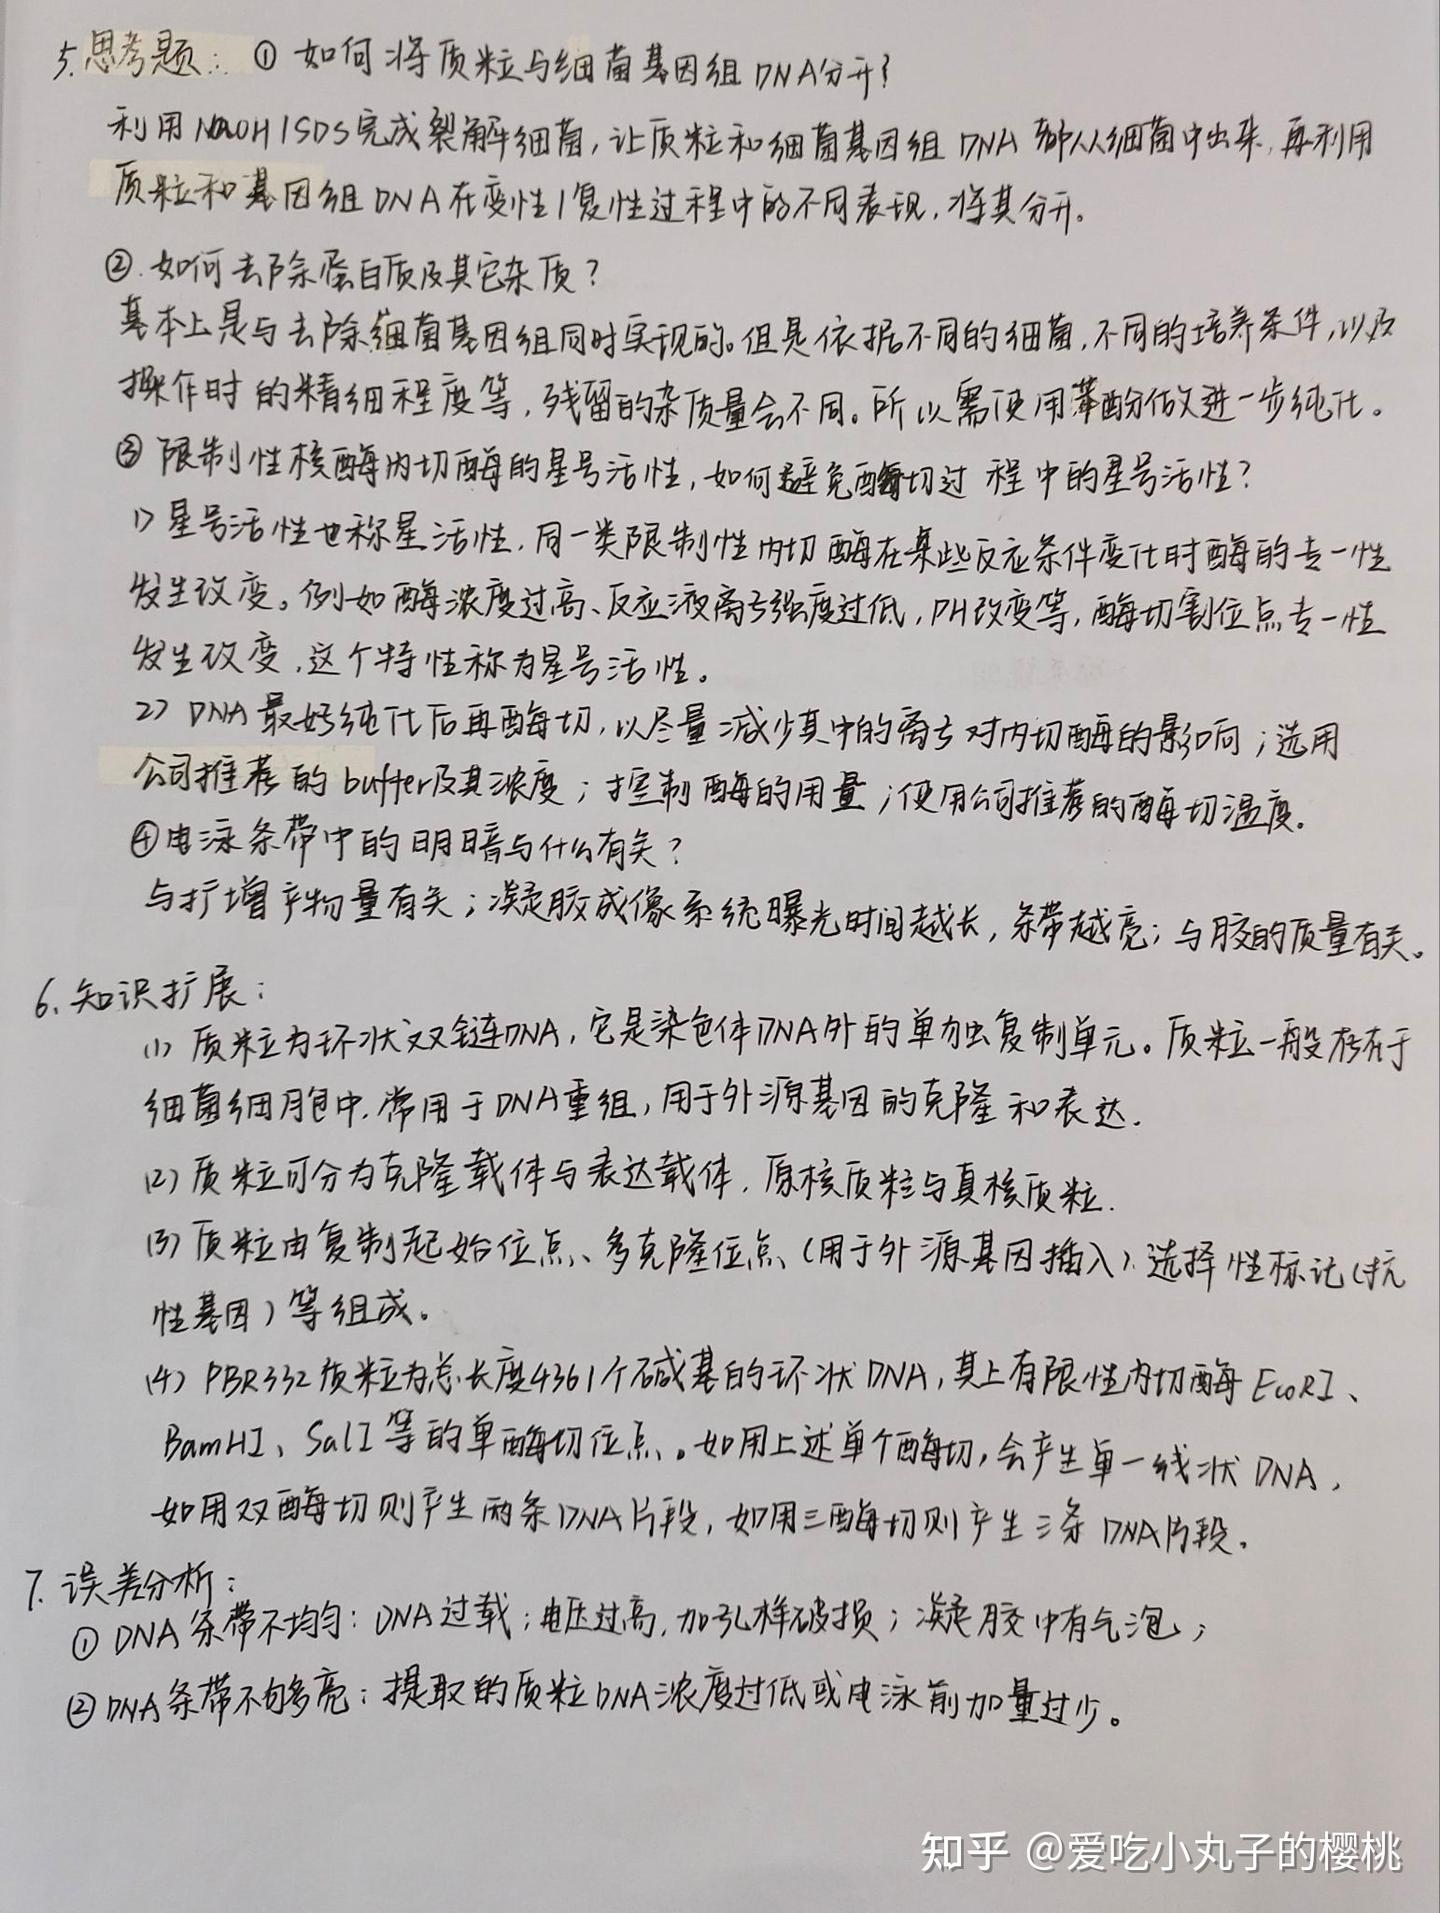 5.思考题：① 如何将质粒与细菌基因组DNA分开？
利用NaOH/SDS完成裂解细菌，让质粒和细菌基因组DNA都从细菌中出来，再利用
质粒和基因组DNA在变性/复性过程中的不同表现，将其分开。
②.如何去除蛋白质及其它杂质？
基本上是与去除细菌基因组同时实现的。但是依据不同的细菌，不同的培养条件，以及
操作时的精细程度等，残留的杂质量会不同。所以需使用苯酚做进一步纯化。
③ 限制性核酶内切酶的星号活性，如何避免酶切过程中的星号活性？
1) 星号活性也称星活性，同一类限制性内切酶在某些反应条件变化时酶的专一性
发生改变。例如酶浓度过高、反应液离子强度过低，PH改变等，酶切割位点专一性
发生改变，这个特性称为星号活性。
2) DNA最好纯化后再酶切，以尽量减少其中的离子对内切酶的影响；选用
公司推荐的buffer及其浓度；控制酶的用量；使用公司推荐的酶切温度。
④电泳条带中的明暗与什么有关？
与扩增产物量有关；凝胶成像系统曝光时间越长，条带越亮；与胶的质量有关。
6.知识扩展：
(1) 质粒为环状双链DNA，它是染色体DNA外的单独复制单元。质粒一般存在于
细菌细胞中，常用于DNA重组，用于外源基因的克隆和表达.
(2) 质粒可分为克隆载体与表达载体，原核质粒与真核质粒.
(3) 质粒由复制起始位点、多克隆位点（用于外源基因插入）、选择性标记（抗
性基因）等组成。
(4) PBR332质粒为总长度4361个碱基的环状DNA，其上有限性内切酶EcoRI、
BamHI、SalI等的单酶切位点。如用上述单个酶切，会产生单一线状DNA，
如用双酶切则产生两条DNA片段，如用三酶切则产生三条DNA片段。
7.误差分析：
① DNA条带不均匀：DNA过载；电压过高，加孔样破损；凝胶中有气泡；
② DNA条带不够亮：提取的质粒DNA浓度过低或电泳前加量过少。
知乎 @爱吃小丸子的樱桃